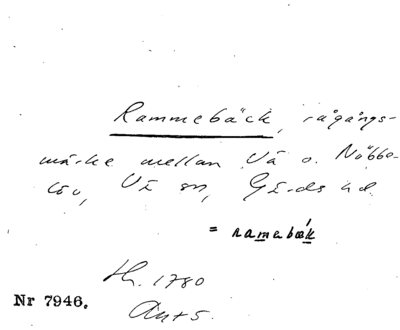 Rammebäck, rågångs-
märke mellan Vä o. Nöbbe-
löv, Vä sn, Gärds hd.
= ramebäk
1780
Nr 7946.